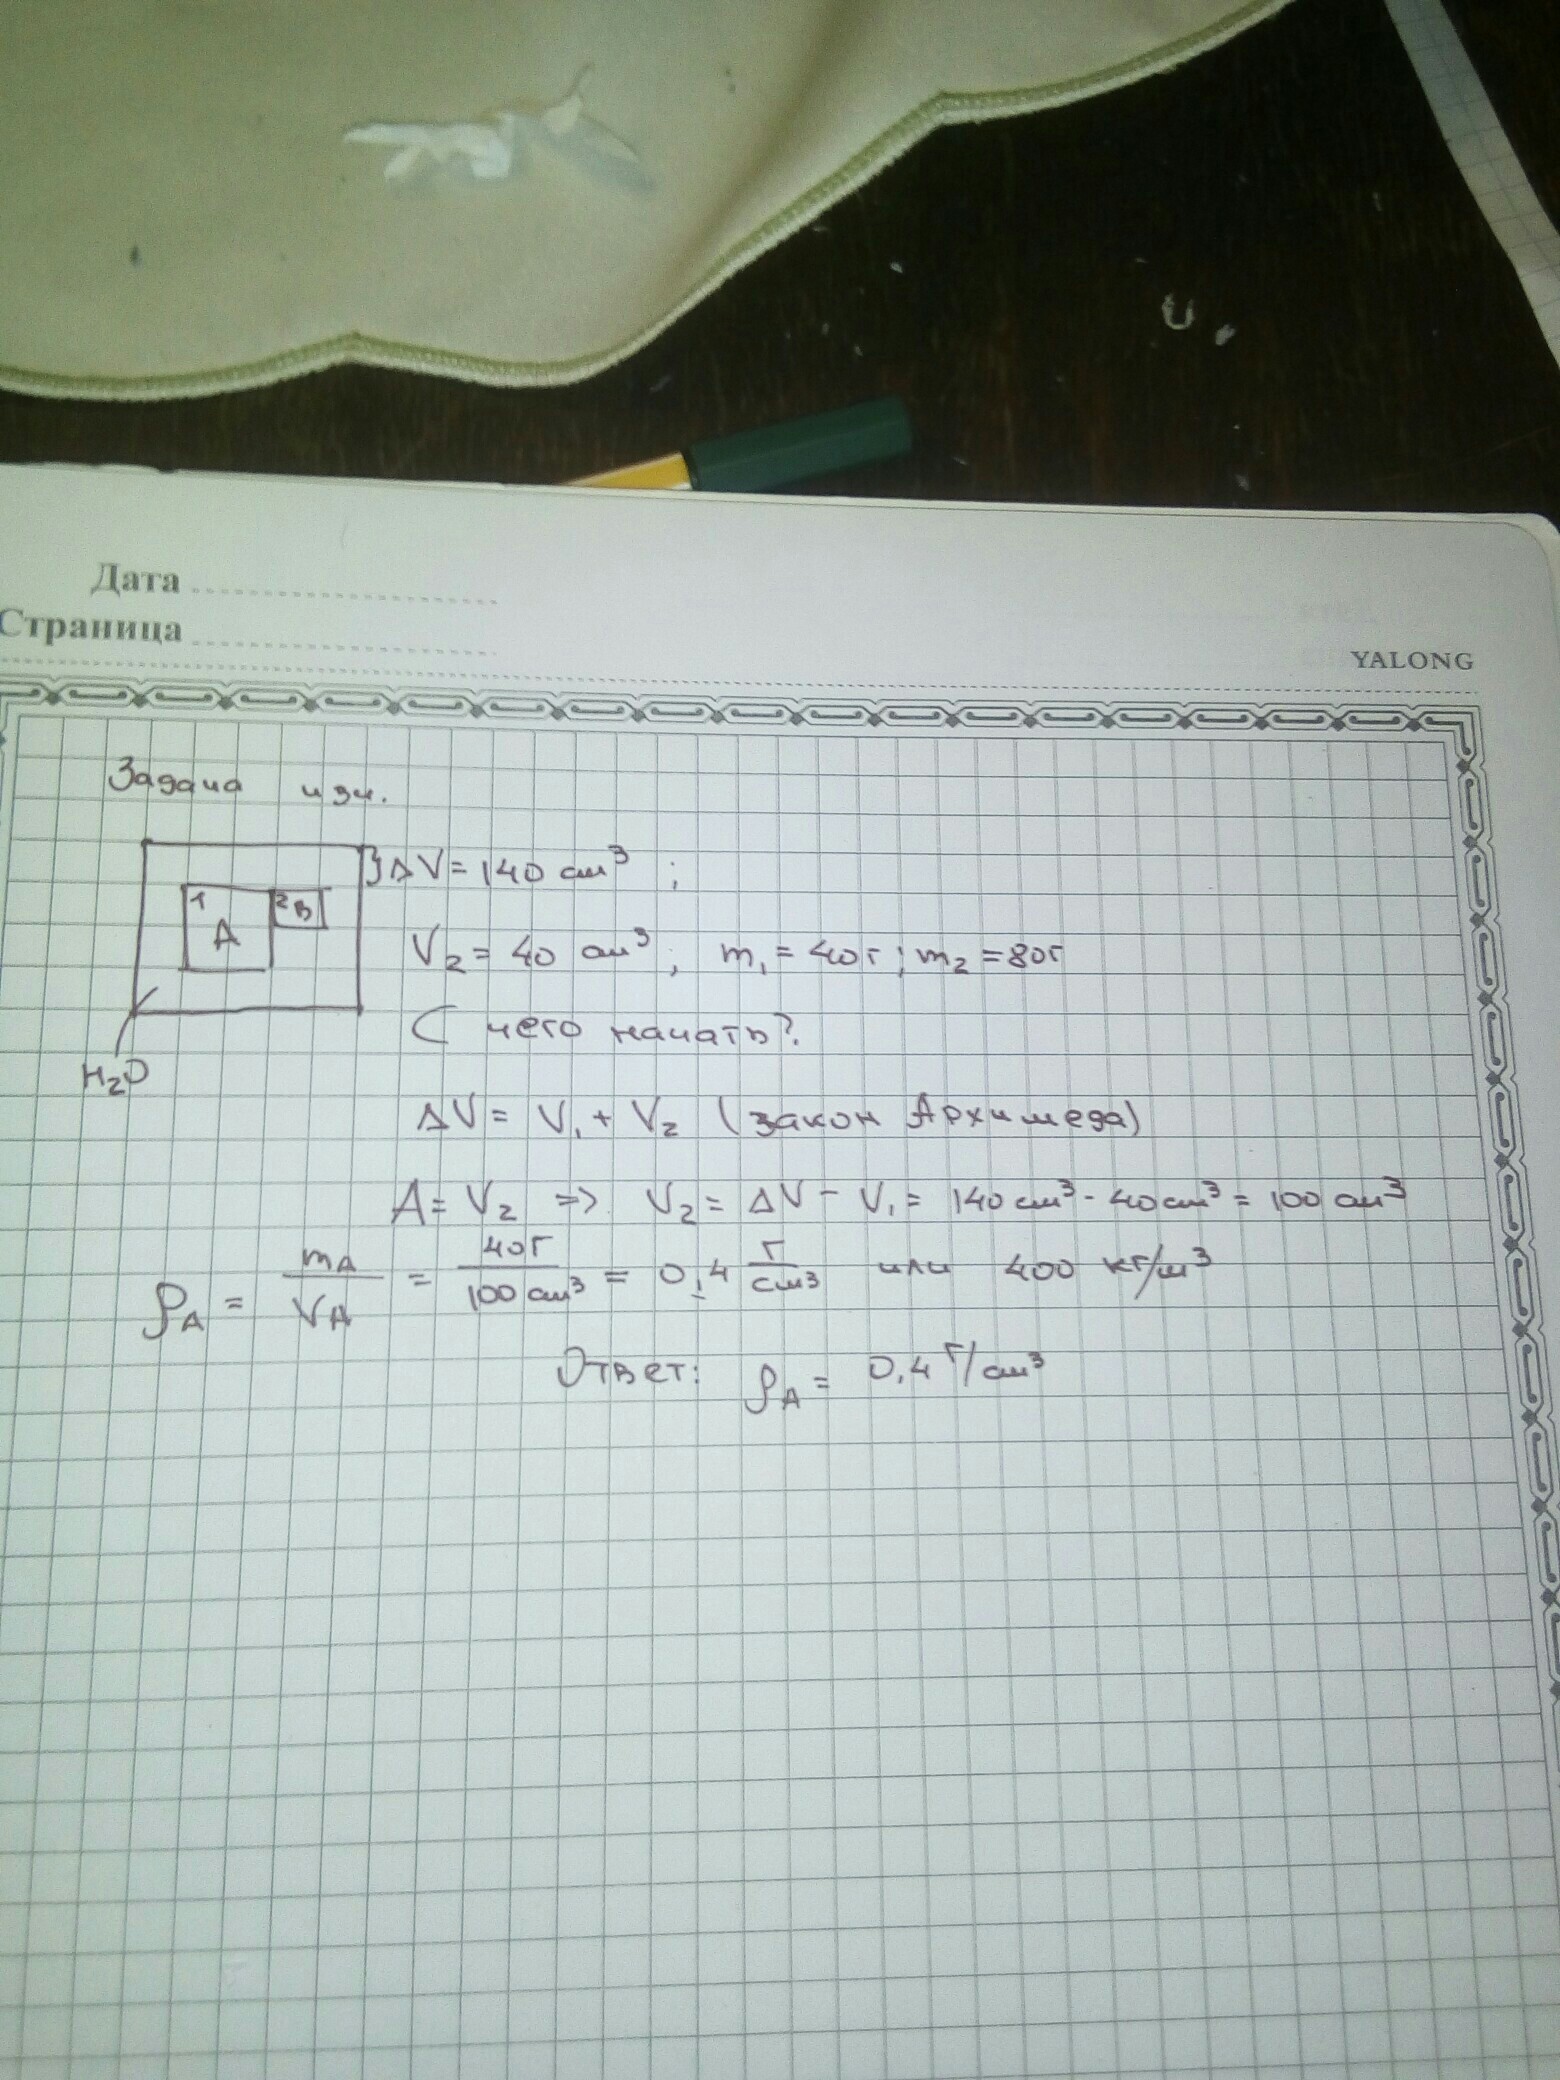 Дата
Страница
YALONG
Задача изн.
1 A 2 B
}ΔV = 140 см³ ;
V₂ = 40 см³ ; m₁ = 40г ; m₂ = 80г
С чего начать?
H₂O
ΔV = V₁ + V₂ (закон Архимеда)
A = V₂ => V₂ = ΔV - V₁ = 140 см³ - 40 см³ = 100 см³
ρA = mA/VA = 40г/100 см³ = 0,4 г/см³ или 400 кг/м³
Ответ: ρA = 0,4 г/см³